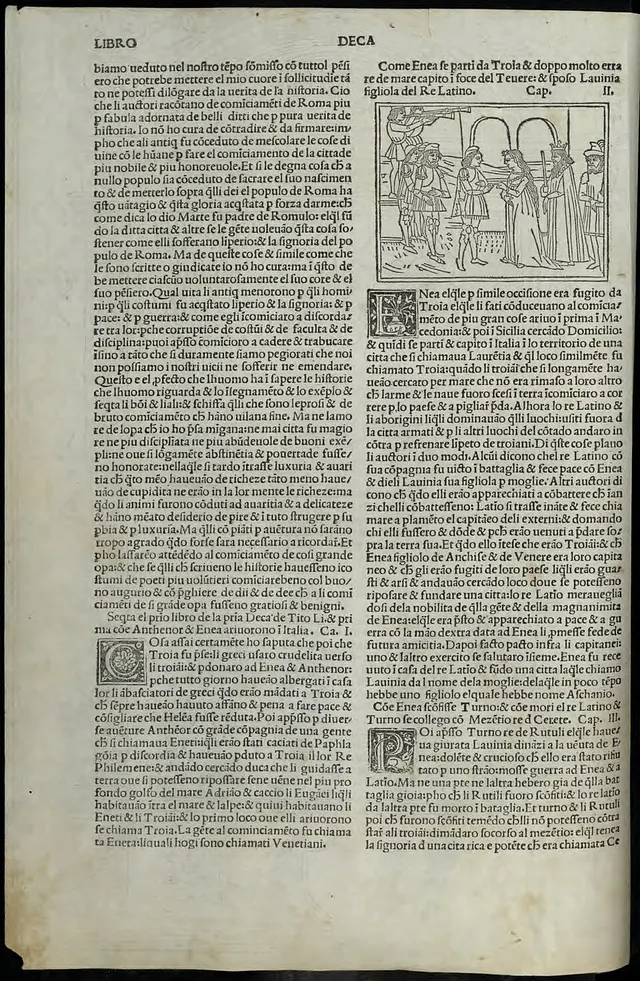 LIBRO
DECA
biamo ueduto nel nostro tēpo sōmisso cō tuttol pēsi
ero che potrebe mettere el mio cuore ī sollicitudīe tā
to ne potessī dilōgare da la uerita de la historia. Cio
che li auctori racōtano de comīciamēti de Roma piu
p fabula adornata de belli ditti che p pura uerita de
historia. Io nō ho cura de cōtradire & da firmare:im/
pho che ali antiq fu cōceduto de mescolare le cose di
uine cō le hūane p fare el comīciamento de la cittade
piu nobile & piu honoreuole. Et si le degna cosa ch
a nullo populo sia cōceduto de sacrare el suo nascimen
to & de metterlo sopra qlli dei el populo de Roma ha
qsto uātagio & qsta gloria acqstata p forza darme:ch
come dica lo dio Marte fu padre de Romulo: elql fū
do la ditta citta & altre se le gēte uoleuāo qsta cosa so/
stener come elli sofferano liperio:& la signoria del po
pulo de Roma. Ma de queste cose & simile come che
le sono scritte o giudicate io nō ho cura:ma ī qsto de
be mettere ciascūo uoluntarosamente el suo core & el
suo pēsiero. Qual uita li antiq menorono p qli homi/
ni:p qli costumi fu acqstato liperio & la signoria: & p
pace: & p guerra:& come egli īcomīciaro a discorda/
re tra lor:pche corruptiōe de costūi & de faculta & de
disciplina:puoi apsso comīcioro a cadere & trabucare
īsino a tāto che si duramente siamo pegiorati che noi
non possiamo i nostri uicii ne sofferir ne emendare.
Questo e el ,pfecto che lhuomo ha ī sapere le historie
che lhuomo riguarda & lo īsegnamēto & lo exēpio &
seqta li bōi & liali:& schiffa qlli che sono leprosi & de
bruto comīciamēto ch hāno uilana fine. Ma ne lamo
re de lopa ch io ho psa mīgana:ne mai citta fu magio
re ne piu discipliata ne piu abūdeuole de buoni exē/
pli:ne oue si lōgamēte abstinētia & pouertade fusse/
no honorate:nellaqle si tardo ītrasse luxuria & auari
tia ch qto mēo haueuāo de richeze tāto meno haue/
uāo de cupidita ne erāo in la lor mente le richeze:ma
qdo li animi furono cōduti ad auaritia & a delicateze
& hāno mēato desiderio de pire & ī tuto strugere p su
pbia & p luxuria. Ma qlli cō piāti p auētura nō sarāno
tropo agrado qdo forse sara necessario a ricordai. Et
pho lassarēo attēdēdo al comīciamēto de cosi grande
opa:& che se qlli ch scriueno le historie hauesseno ico
stumi de poeti piu uolūtieri comīciarebeno col buo/
no augurio & cō pghiere de dii & de dee ch a li comī
ciamēti de si grāde opa fusseno gratiosi & benigni.
Seqta el prio libro de la pria Deca de Tito Li. & pri
ma cōe Anthenor & Enea ariuorono ī Italia. Ca. I.
COsa assai certamēte ho saputa che poi che
Troia fu psa:li greci usaro crudelita uerso
li troiāi:& pdonaro ad Enea & Anthenor:
pche tutto giorno haueāo albergati ī casa
lor li abasciatori de greci qdo erāo mādati a Troia &
ch sēpre haueāo hauuto affāno & pena a fare pace &
cōsigliare che Helēa fusse rēduta. Poi appsso p diuer/
se auēture Anthēor cō grāde cōpagnia de una gente
ch si chiamaua Eneti:qli erāo stati caciati de Paphla
gōia p discordia & haueuāo pduto a Troia il lor Re
Philemene:& andādo cercādo duca che li guidasse a
terra oue si potesseno ripossare sene uēne nel piu pro
fondo golfo del mare Adriāo & caccio li Eugāei liqli
habitauāo ītra el mare & lalpe:& quiui habitauano li
Eneti & li Troiāi:& lo primo loco oue elli ariuorono
se chiama Troia. La gēte al cominciamēto fu chiama
ta Eneta:liquali hogi sono chiamati Venetiani.
Come Enea se parti da Troia & doppo molto erra
re de mare capito ī foce del Teuere: & sposo Lauinia
figliola del Re Latino. Cap. II.
ENea elqle p simile occisione era fugito da
Troia elqle li fati cōduceuano al comīcia/
mēto de piu gran cose ariuo ī prima ī Ma/
cedonia:& poi ī Sicilia cercādo Domicilio:
& quīdi se parti & capito ī Italia ī lo territorio de una
citta che si chiamaua Laurētia & ql loco similmēte fu
chiamato Troia:quādo li troiāi che si longamēte ha/
ueāo cercato per mare che nō era rimaso a loro altro
ch larme & le naue fuoro scesi ī terra īcomīciaro a cor
rere p lo paese & a pigliar pda. Alhora lo re Latino &
li aborigini liqli dominauāo qlli luochi:usiti fuora d
la citta armati & p li altri luochi del cōtado andaro in
cōtra p refrenare līpeto de troiani. Di qste cose plano
li auctori ī duo modi. Alcūi dicono chel re Latino cō
sua cōpagnia fu uisto ī battaglia & fece pace cō Enea
& dieli Lauinia sua figliola p moglie. Altri auctori di
cono ch qdo elli erāo apparechiati a cōbattere ch īan
zi chelli cōbattesseno: Latīo si trasse ināte & fece chia
mare a plamēto el capitāeo deli externi:& domando
chi elli fussero & dōde & pch erāo uenuti a pdare so/
pra la terra sua. Et qdo ello ītese che erāo Troiāi:& ch
Enea figliolo de Anchise & de Venere era loro capita
neo & ch gli erāo fugiti de loro paese liqli erāo gua/
sti & arsi & andauāo cercādo loco doue se potesseno
riposare & fundare una citta:lo re Latīo merauegliā
dosi dela nobilita de qlla gēte & della magnanimita
de Enea:elqle era psto & apparechiato a pace & a gu
erra cō la māo dextra data ad Enea li ,pmesse fede de
futura amicitia. Dapoi facto pacto infra li capitanei:
uno & laltro exercito se salutaro īsieme. Enea fu rece
uuto ī casa del re Latīo & fūdo una citta laqle chiamo
Lauinia da l nome dela moglie:delaqle in poco tēpo
hebbe uno figliolo elquale hebbe nome Aschanio.
Cōe Enea scōfisse Turno:& cōe mori el re Latino &
Turno se collego cō Mezētio re d Cerete. Cap. III.
POi apsso Turno re de Rutuli elqle haue/
ua giurata Lauinia dināzi a la uēuta de E/
nea:dolēte & crucioso ch ello era stato rifiu
tato p uno strāo:mosse guerra ad Enea & a
Latīo. Ma ne una pte ne laltra hebero gia de qlla bat
taglia gioia:pho ch li Rutili fuoro scōfiti:& lo re latio
da laltra pte fu morto ī battaglia. Et turno & li Rutuli
poi ch furono scōfiti temēdo chlli nō potesseno cōtra
star ali troiāi:dimādaro socorso al mezētio: elql tenea
la signoria d una cita rica e potēte ch era chiamata Ce